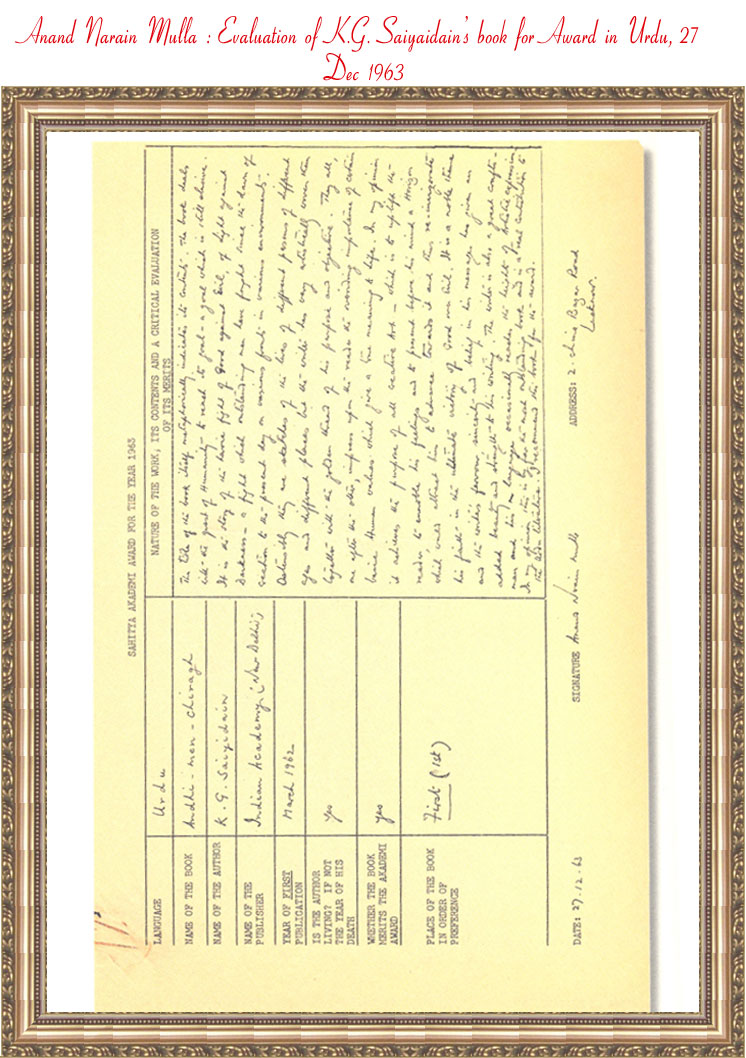 Anand Narain Mulla : Evaluation of K.G. Saiyaidain's book for Award in Urdu, 27
Dec 1963
SAHITYA AKADEMI AWARD FOR THE YEAR 1963
LANGUAGE
Urdu
NAME OF THE BOOK
Andhi - men - Chiragh
NAME OF THE AUTHOR
K. G. Saiyidain
NAME OF THE
PUBLISHER
Indian Academy, (New Delhi)
YEAR OF FIRST
PUBLICATION
March 1962
IS THE AUTHOR
LIVING? IF NOT
THE YEAR OF HIS
DEATH
Yes
WHETHER THE BOOK
MERITS THE AKADEMI
AWARD
Yes
PLACE OF THE BOOK
IN ORDER OF
PREFERENCE
First (1st)
NATURE OF THE WORK, ITS CONTENTS AND A CRITICAL EVALUATION
OF ITS MERITS
The title of the book itself metaphorically indicates its contents. The book deals
with the quest of Humanity to reach its goal - a goal which is still elusive.
It is the story of the heroic fight of Good against Evil, of light against
Darkness - a fight which outstanding men have fought since the dawn of
creation to the present day on various fronts in various environments.
Ostensibly they are sketches of the lives of different persons of different
ages and different places but the writer has very artistically woven them
together with the golden thread of his purpose and objective. They all,
one after the other, impress upon the reader the abiding importance of certain
basic Human values which give a true meaning to life. In my opinion
it achieves the purpose of all creative Art - which is to uplift the
reader to ennoble his feelings and to present before his mind a Horizon
which would attract him to advance towards it and thus re-invigorate
his faith in the ultimate victory of Good over Evil. It is a noble theme
and the writer's fervour, sincerity and belief in his message has given an
added beauty and strength to his writing. The writer is also a good crafts-
man and his language occasionally reaches the heights of artistic expression
In my opinion this is by far the most outstanding book and is a real contribution to
the Urdu literature. I recommend this book for the award.
DATE: 27.12.63
SIGNATURE Anand Narain Mulla
ADDRESS: 2. Bagh Road
Lucknow.